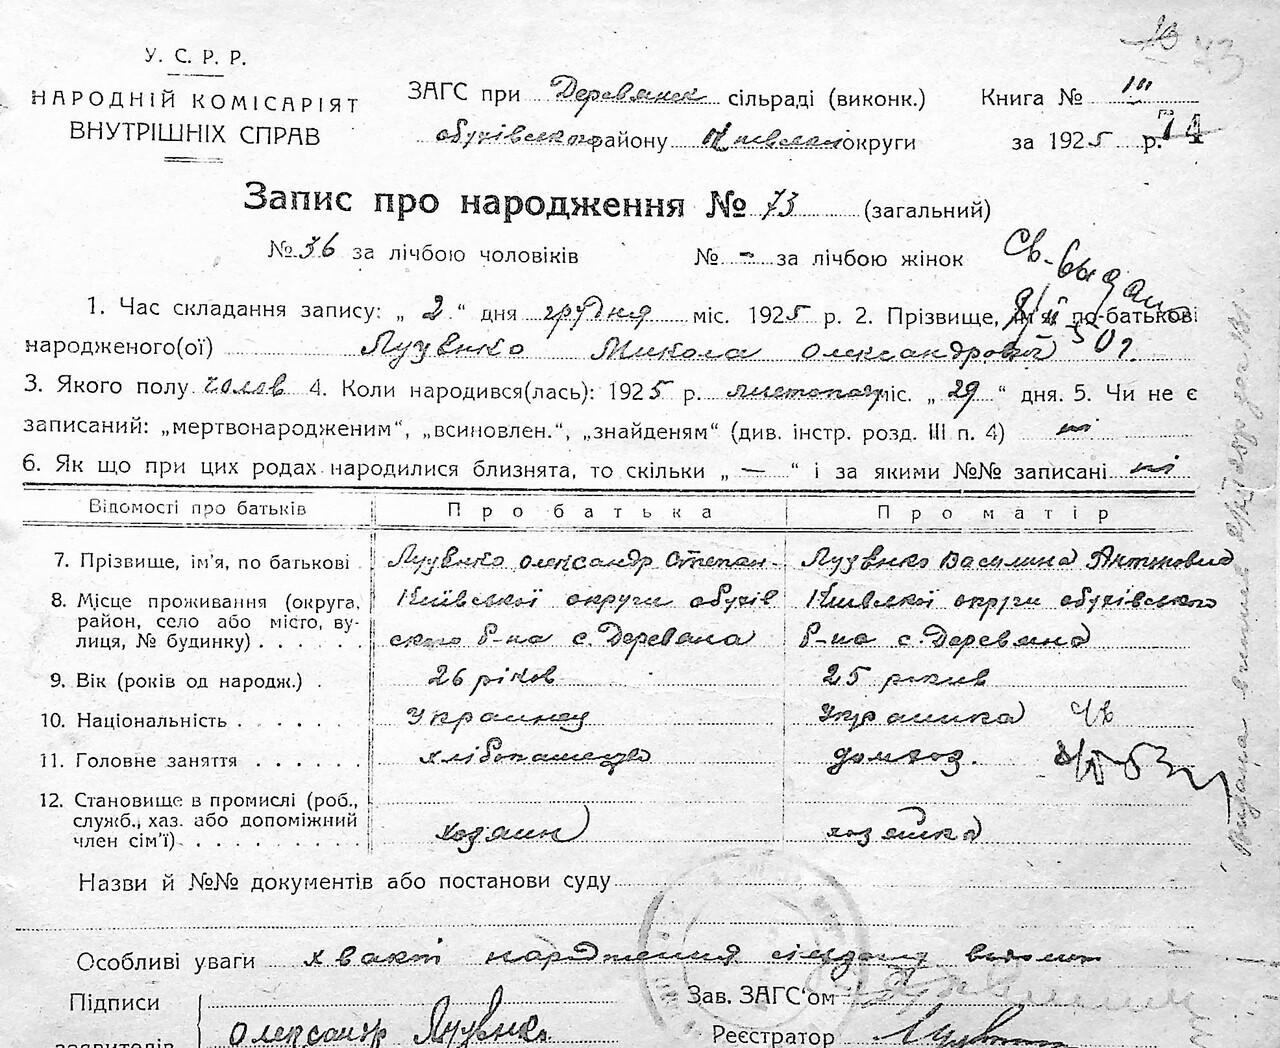 У. С. Р. Р.
НАРОДНІЙ КОМІСАРІЯТ
ВНУТРІШНІХ СПРАВ
ЗАГС при Деревянск сільраді (виконк.)
обухівського району Київської округи
Книга № III
за 1925 р.
73
74
Запис про народження № 73 (загальний)
№ 36 за лічбою чоловіків № - за лічбою жінок
Св-
1. Час складання запису: „ 2 “ дня грудня міс. 1925 р. 2. Прізвище, ім'я по-батькові
народженого(ої) Лузенко Микола Олександрович
3. Якого полу чолов 4. Коли народився(лась): 1925 р. листопад міс. „ 29 “ дня. 5. Чи не є
записаний: „мертвонародженим“, „всиновлен.“, „знайденям“ (див. інстр. розд. III п. 4) ні
6. Як що при цих родах народилися близнята, то скільки „ — “ і за якими №№ записані ні
Відомості про батьків Про батька Про матір
7. Прізвище, ім'я, по батькові Лузенко Олександр Степан. Лузенко Василина Антоновна
8. Місце проживання (округа, район, село або місто, вулиця, № будинку) Київської округи обухівського р-на с. Деревяна Київської округи обухівського р-на с. Деревяна
9. Вік (років од народж.) 26 років 25 років
10. Національність Украинец Украинка
11. Головне заняття хлібопашецтво домхоз.
12. Становище в промислі (роб., служб., хаз. або допоміжний член сім'ї) хозяин хозяйка
Назви й №№ документів або постанови суду
Особливі уваги народження
Підписи
заявителів Олександр Лузенко
Зав. ЗАГС'ом
Реєстратор